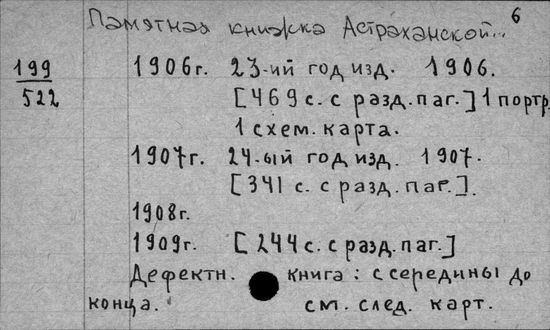 6
Памятная книжка Астраханской..
199 1906г. 23-ий год изд. 1906.
522 [469 с. с разд. паг.] 1 портр
1 схем. карта.
1907г. 24-ый год изд. 1907.
[341 с. с разд. паг.].
1908г.
1909г. [244 с. с разд. паг.]
Дефектн. книга: с середины до
конца. см. след. карт.